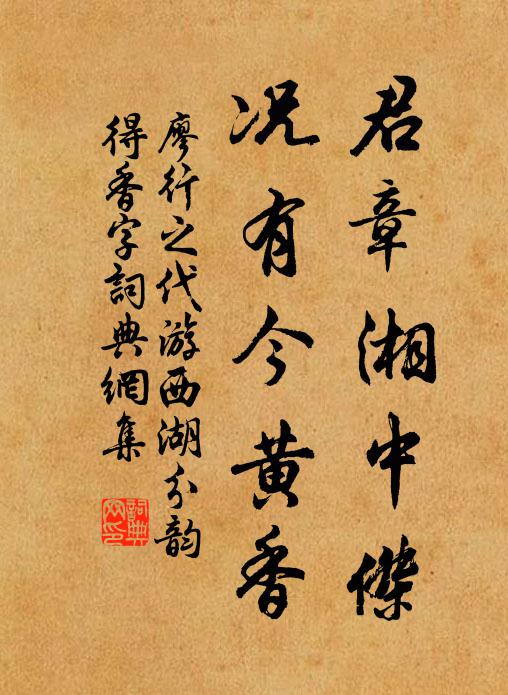 君章湘中傑
况有今黄香
廖行之代游西湖分韵
得香字詞典網集
詞典網印